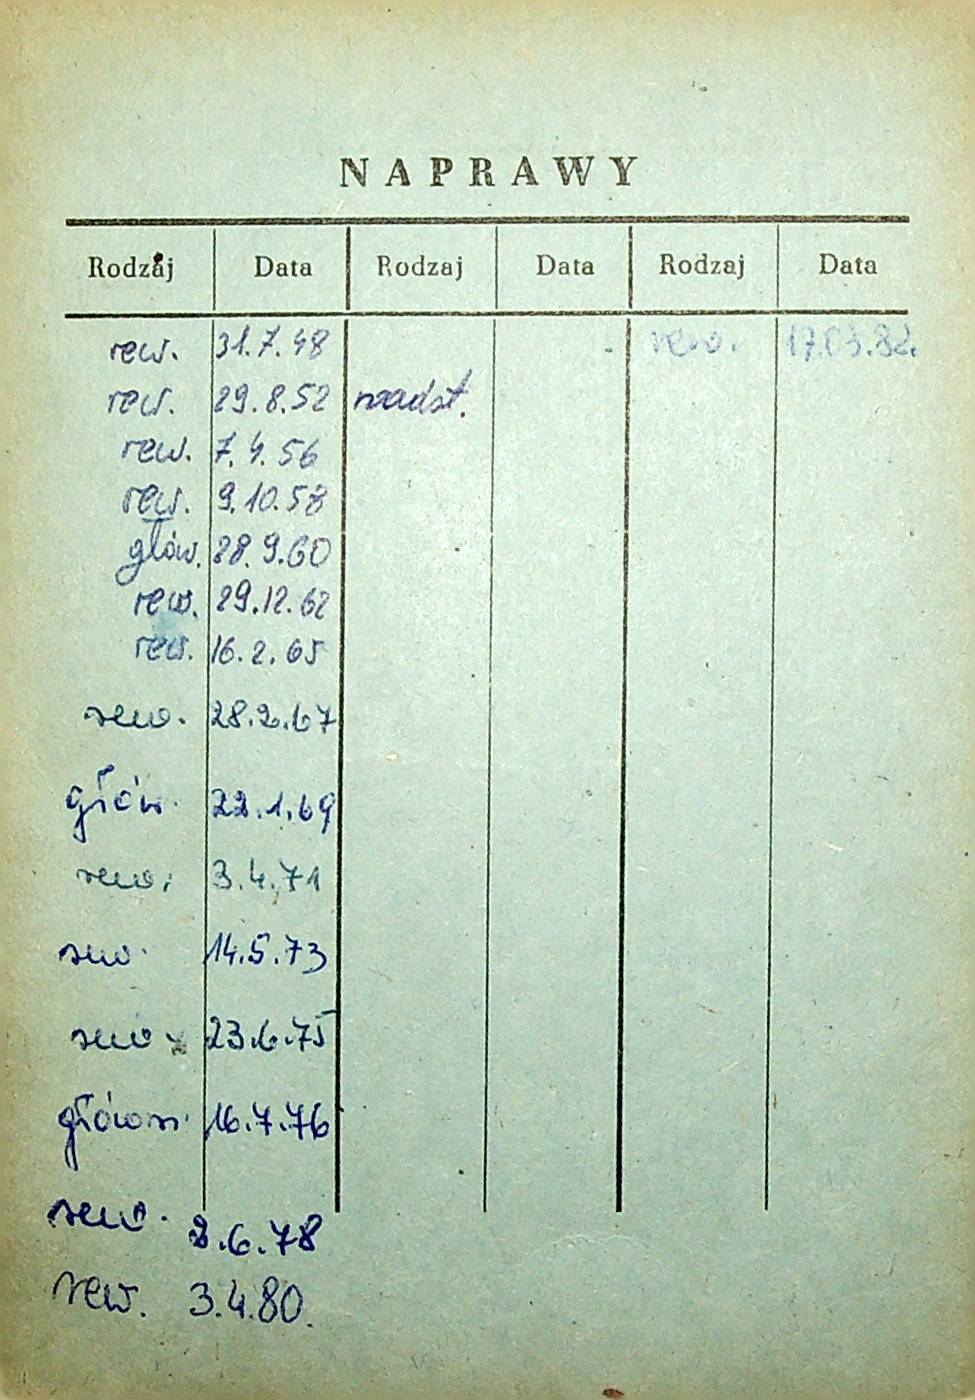 NAPRAWY
Rodzaj Data Rodzaj Data Rodzaj Data
rew. 31.7.48 rew. 17.03.82.
rew. 29.8.52
rew. 7.4.56
rew. 9.10.58
głów. 28.9.60
rew. 29.12.62
rew. 16.2.65
rew. 28.2.67
głów. 22.1.69
rew. 3.4.71
rew. 14.5.73
rew. 23.6.75
główn. 16.7.76
rew. 2.6.78
rew. 3.4.80.